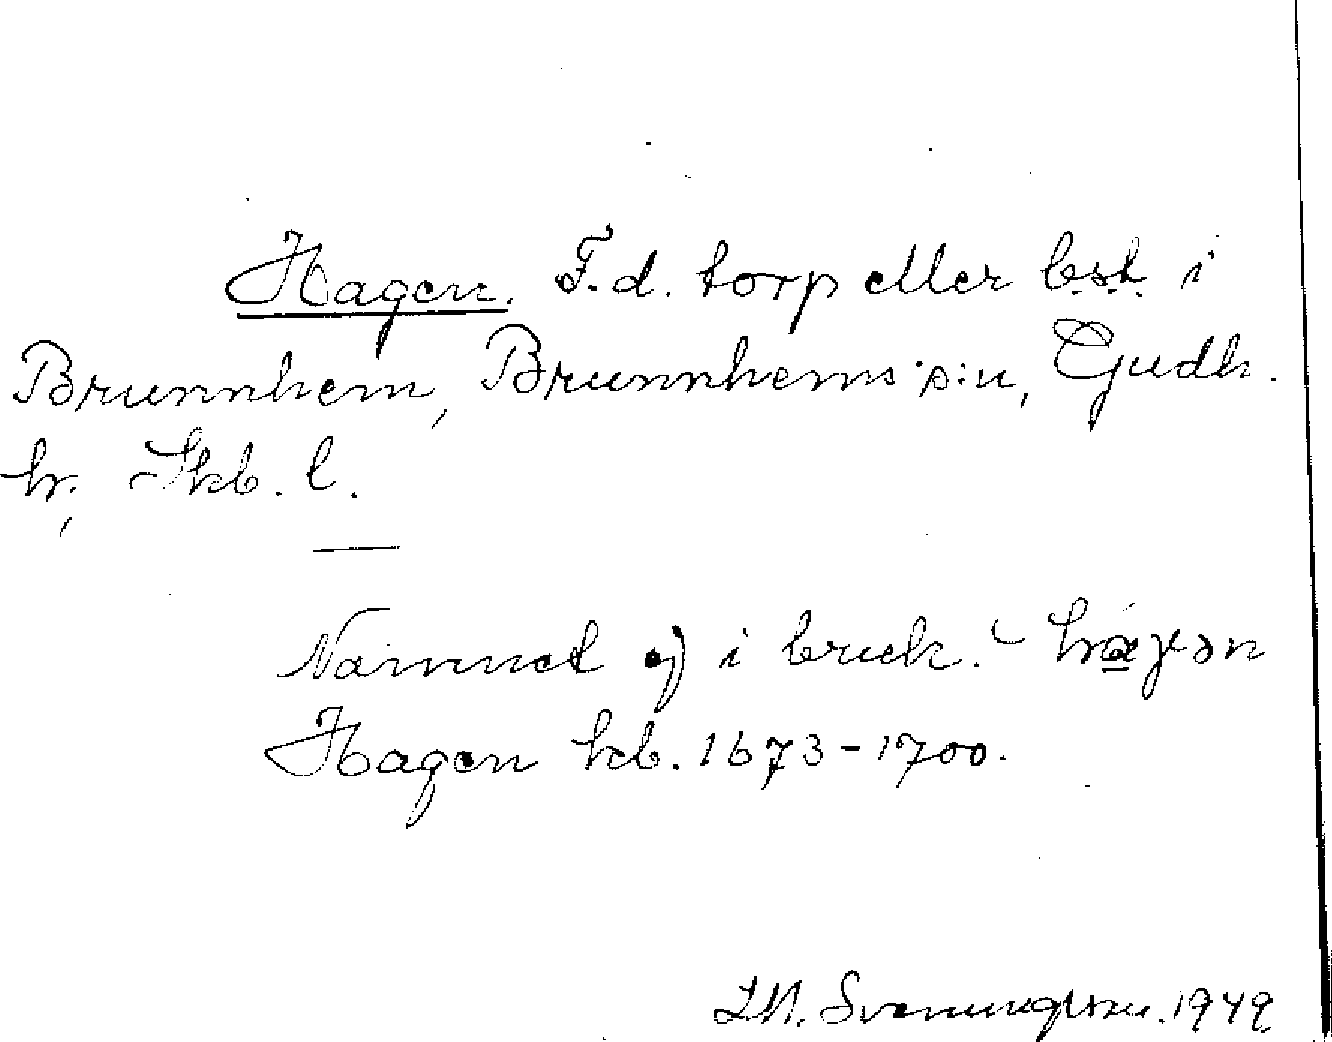 Hagen. F.d. torp eller bst. i
Brunnhem, Brunnhems s:n, Gudh.
hr, Skb. l.
Namnet ej i bruk. -
Hagen kb. 1673-1700.
Svenungsson. 1949